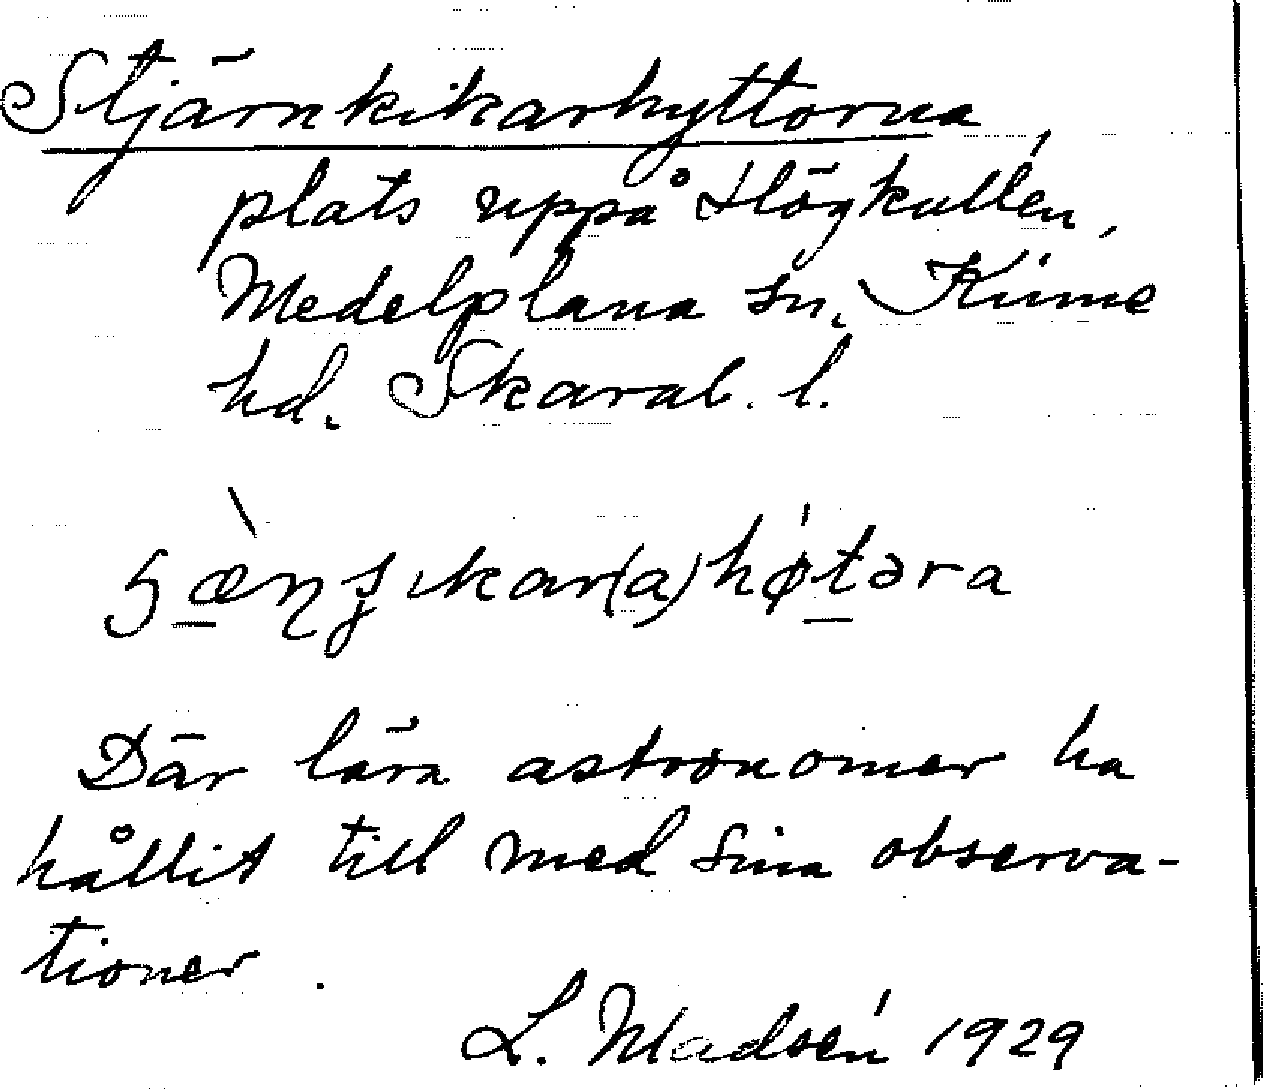 Stjärnkikarhyttorna,
plats uppå Högkullen,
Medelplana sn, Kinne
hd. Skarab. l.
Där lära astronomer ha
hållit till med sina observa-
tioner.
L. Madsén 1929